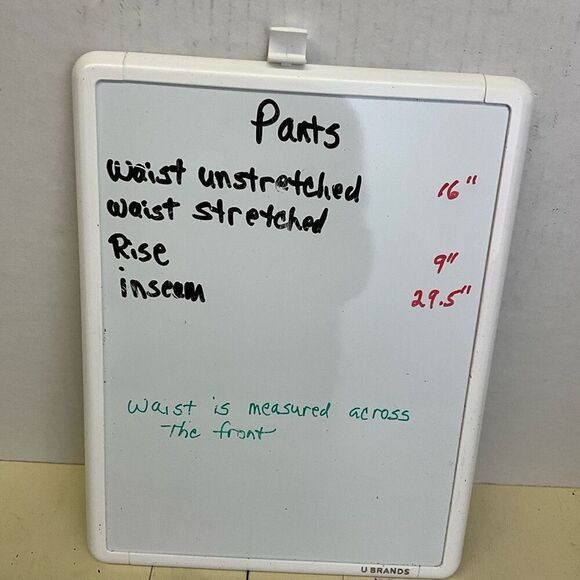 Pants
waist unstretched 16"
waist stretched
Rise 9"
inseam 29.5"
Waist is measured across
The front
U BRANDS